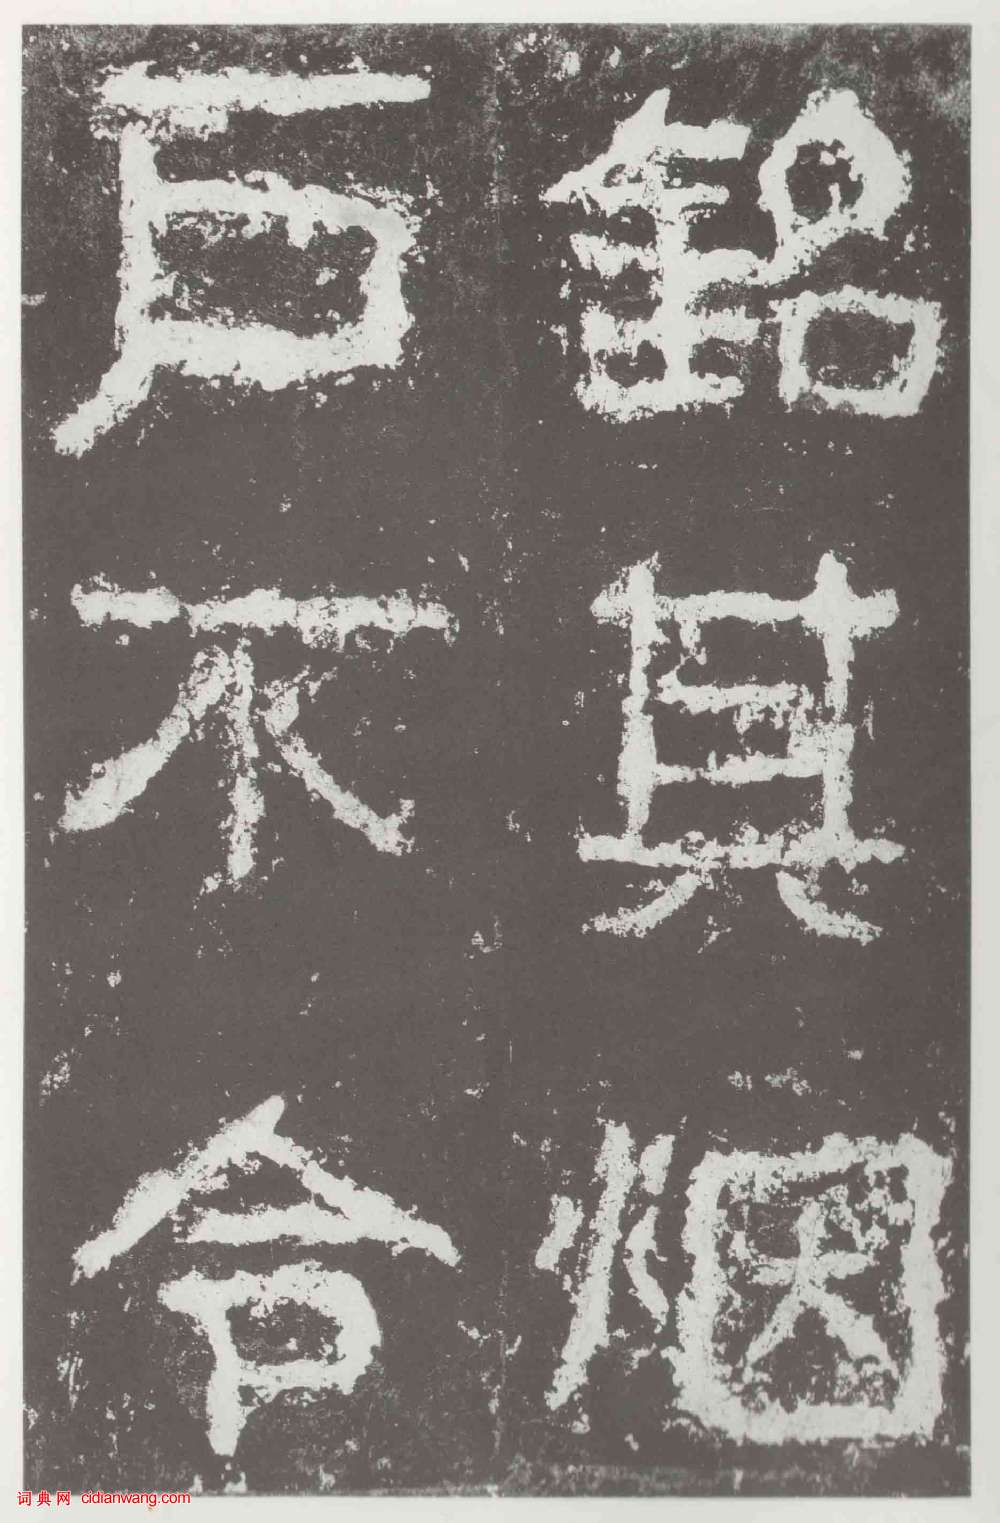 銘其烟
戶不合
词典网 cidianwang.com